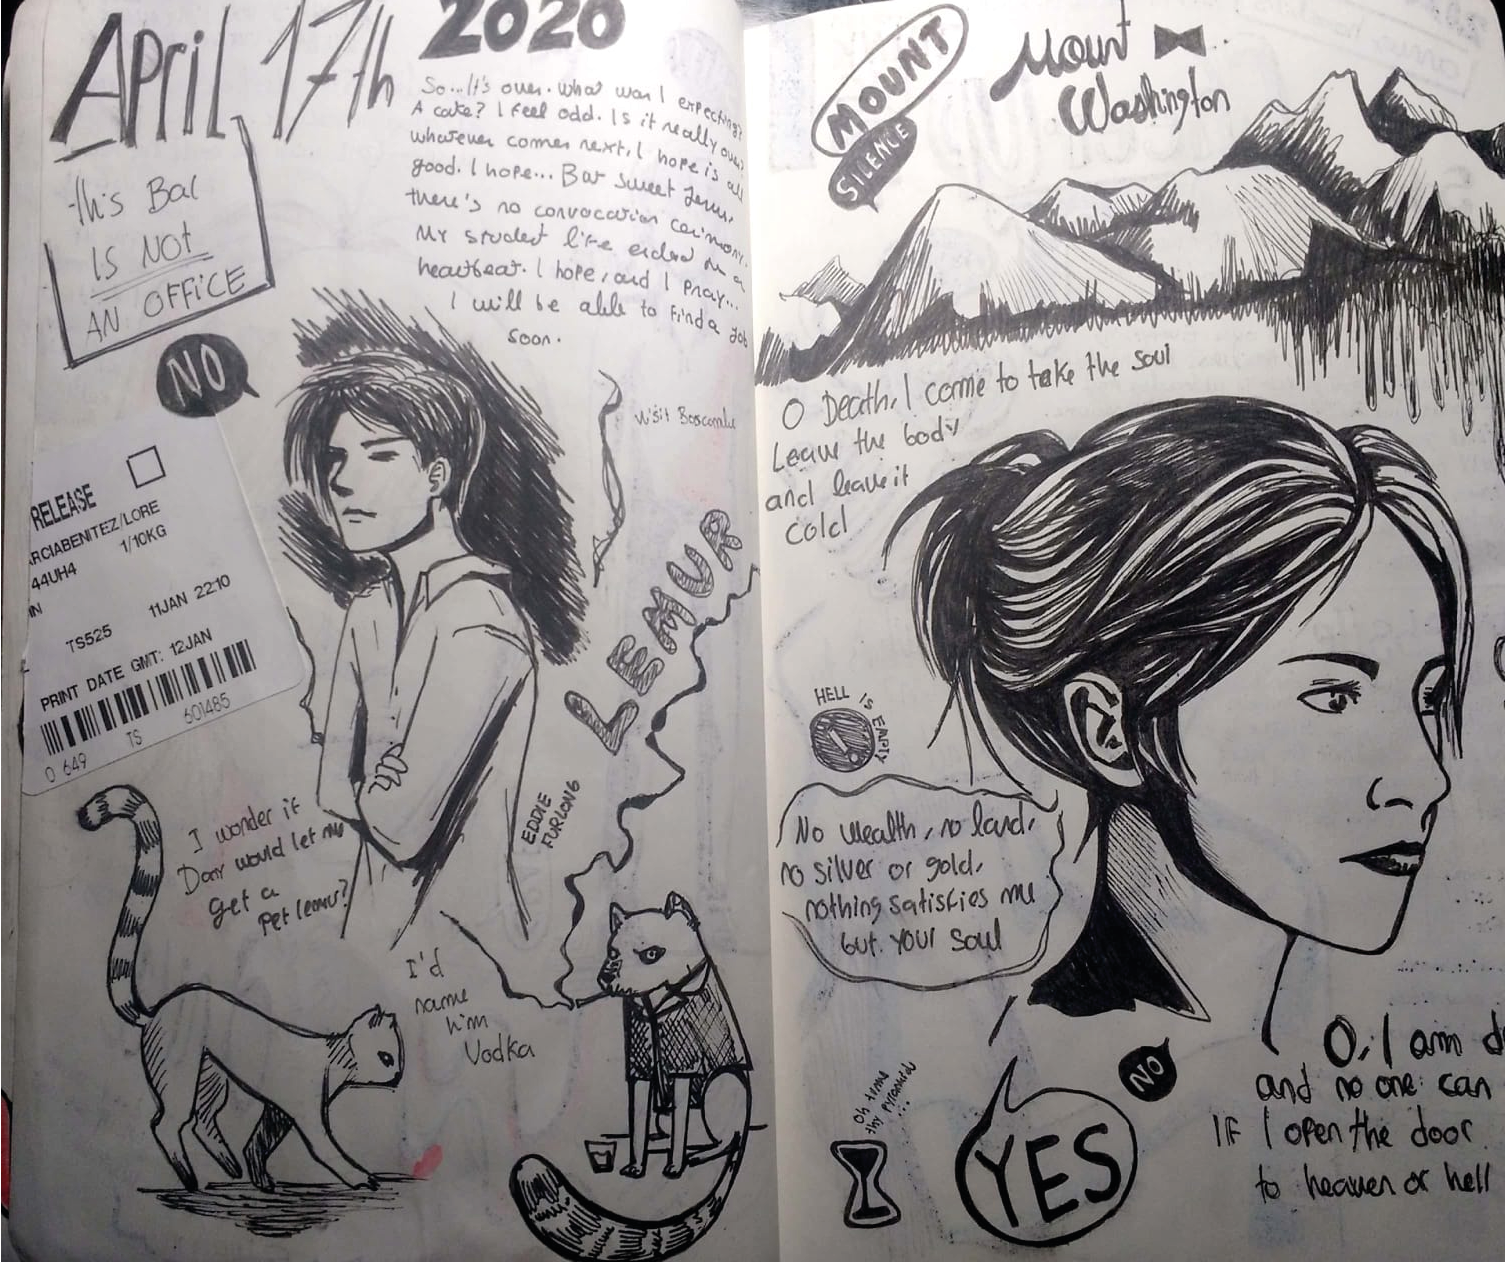 April 17th 2020
So... It's over. what was I expecting?
A cake? I feel odd. Is it really over?
whatever comes next, I hope is all
good. I hope... But sweet Jesus,
there's no convocation cerimony.
My student life ended in a
heartbeat. I hope, and I pray...
I will be able to find a job
soon.
this Bal
IS NOT
AN OFFICE
NO
RELEASE
ARCIABENITEZ/LORE
1/10KG
44UH4
IN
TS525
11JAN 22:10
PRINT DATE GMT: 12JAN
601485
TS
0 649
Visit Boscombe
LEMUR
EDDIE
FURLONG
I wonder if
would let me
get a
Pet lemur?
I'd
name
him
Vodka
MOUNT
SILENCE
Mount
Washington
O Death, I come to take the soul
Leave the body
and leave it
cold
HELL IS EMPTY
!
No wealth, no land,
no silver or gold,
nothing satisfies me
but your soul
Oh time
thy pyramids
...
YES
NO
O, I am d
and no one can
IF I open the door
to heaven or hell